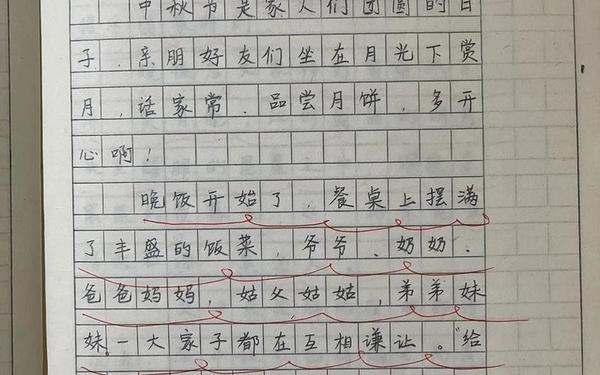 中秋节是家人们团圆的日
子，亲朋好友们坐在月光下赏
月，话家常，品尝月饼，多开
心啊！
晚饭开始了，餐桌上摆满
了丰盛的饭菜，爷爷、奶奶、
爸爸妈妈，姑父姑姑，弟弟妹
妹，一大家子都在互相谦让。“给